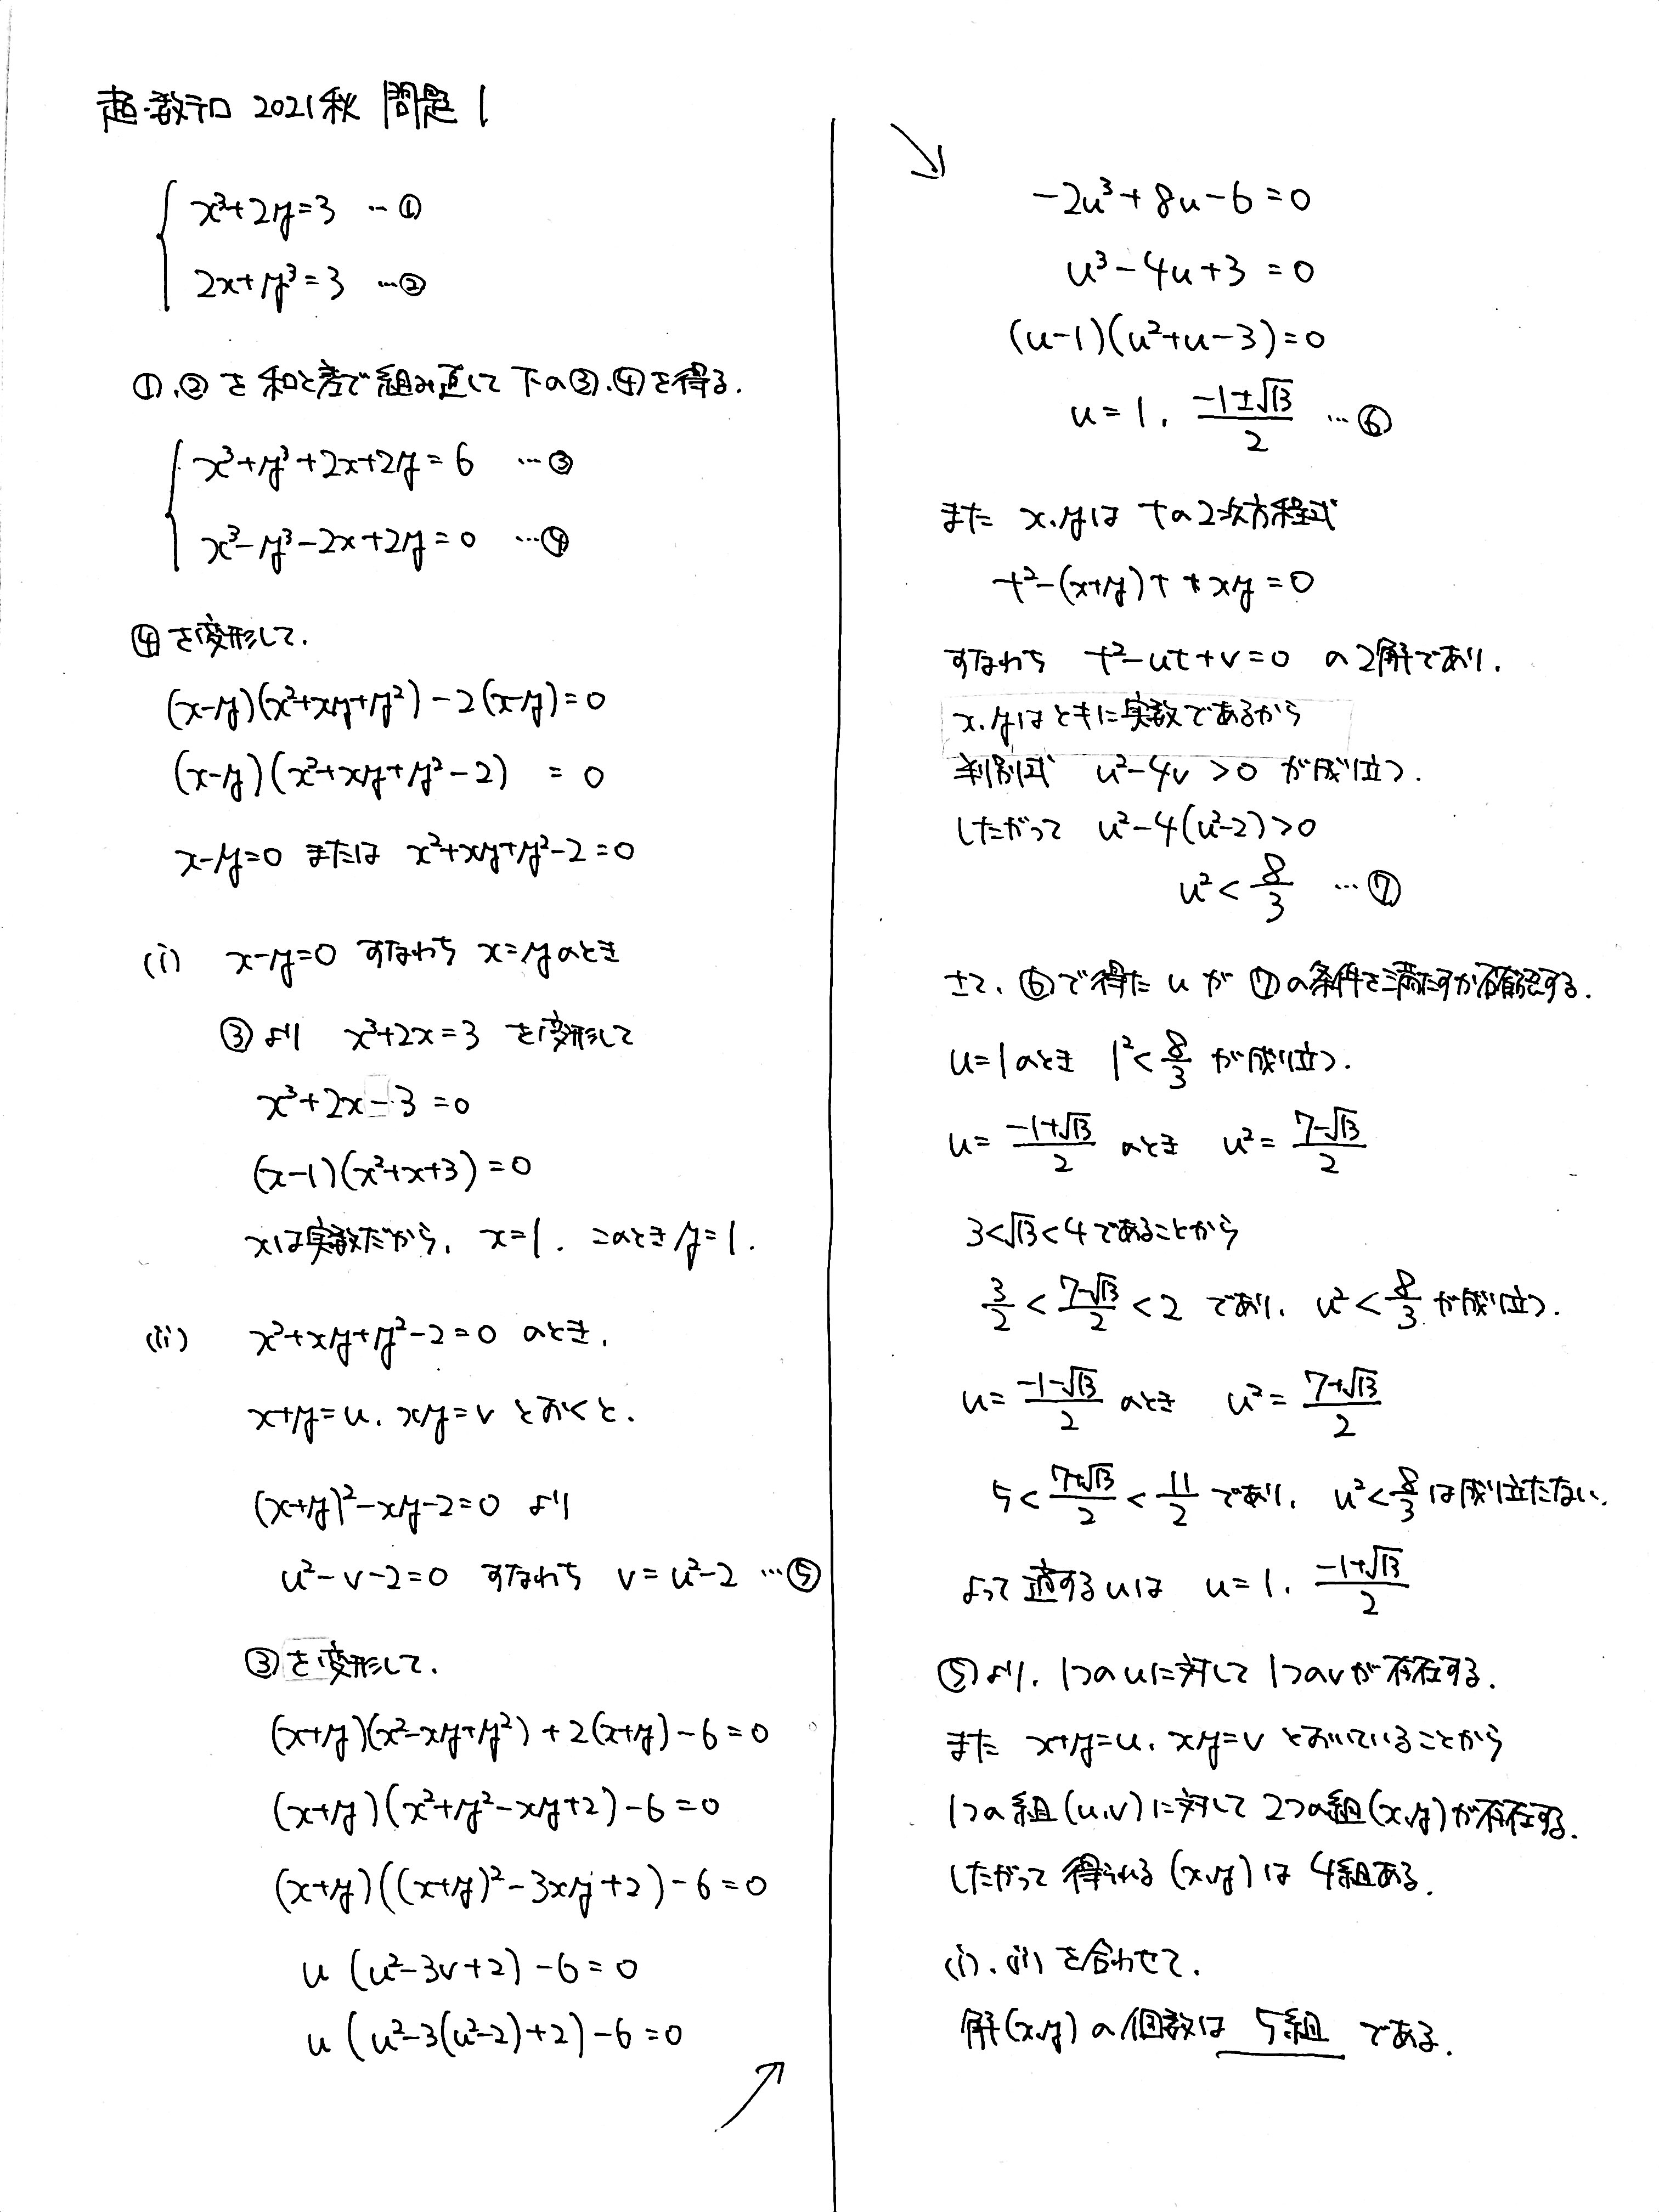 超・数テロ 2021秋 問題1
x³+2y=3 …①
2x+y³=3 …②
①、②を和と差で組み直して下の③、④を得る.
x³+y³+2x+2y=6 …③
x³-y³-2x+2y=0 …④
④を変形して、
(x-y)(x²+xy+y²)-2(x-y)=0
(x-y)(x²+xy+y²-2) = 0
x-y=0 または x²+xy+y²-2=0
(i) x-y=0 すなわち x=yのとき
③より x³+2x=3 を変形して
x³+2x-3=0
(x-1)(x²+x+3)=0
xは実数だから、x=1. このときy=1.
(ii) x²+xy+y²-2=0 のとき、
x+y=u、xy=v とおくと、
(x+y)²-xy-2=0 より
u²-v-2=0 すなわち v=u²-2 …⑤
③を変形して、
(x+y)(x²-xy+y²)+2(x+y)-6=0
(x+y)(x²+y²-xy+2)-6=0
(x+y)((x+y)²-3xy+2)-6=0
u(u²-3v+2)-6=0
u(u²-3(u²-2)+2)-6=0
-2u³+8u-6=0
u³-4u+3=0
(u-1)(u²+u-3)=0
u=1、(-1±√13)/2 …⑥
また x、yは tの2次方程式
t²-(x+y)t+xy=0
すなわち t²-ut+v=0 の2解であり、
x、yはともに実数であるから
判別式 u²-4v>0 が成り立つ.
したがって u²-4(u²-2)>0
u²<8/3 …⑦
さて、⑥で得たuが⑦の条件を満たすか確認する.
u=1のとき 1²<8/3 が成り立つ.
u=(-1+√13)/2 のとき u²=(7-√13)/2
3<√13<4であることから
3/2<(7-√13)/2<2 であり、u²<8/3が成り立つ.
u=(-1-√13)/2 のとき u²=(7+√13)/2
5<(7+√13)/2<11/2 であり、u²<8/3は成り立たない.
よって適するuは u=1、(-1+√13)/2
⑤より、1つのuに対して1つのvが存在する.
また x+y=u、xy=v とおいていることから
1つの組(u,v)に対して2つの組(x,y)が存在する.
したがって得られる(x,y)は4組ある.
(i)、(ii)を合わせて、
解(x,y)の個数は 5組 である.